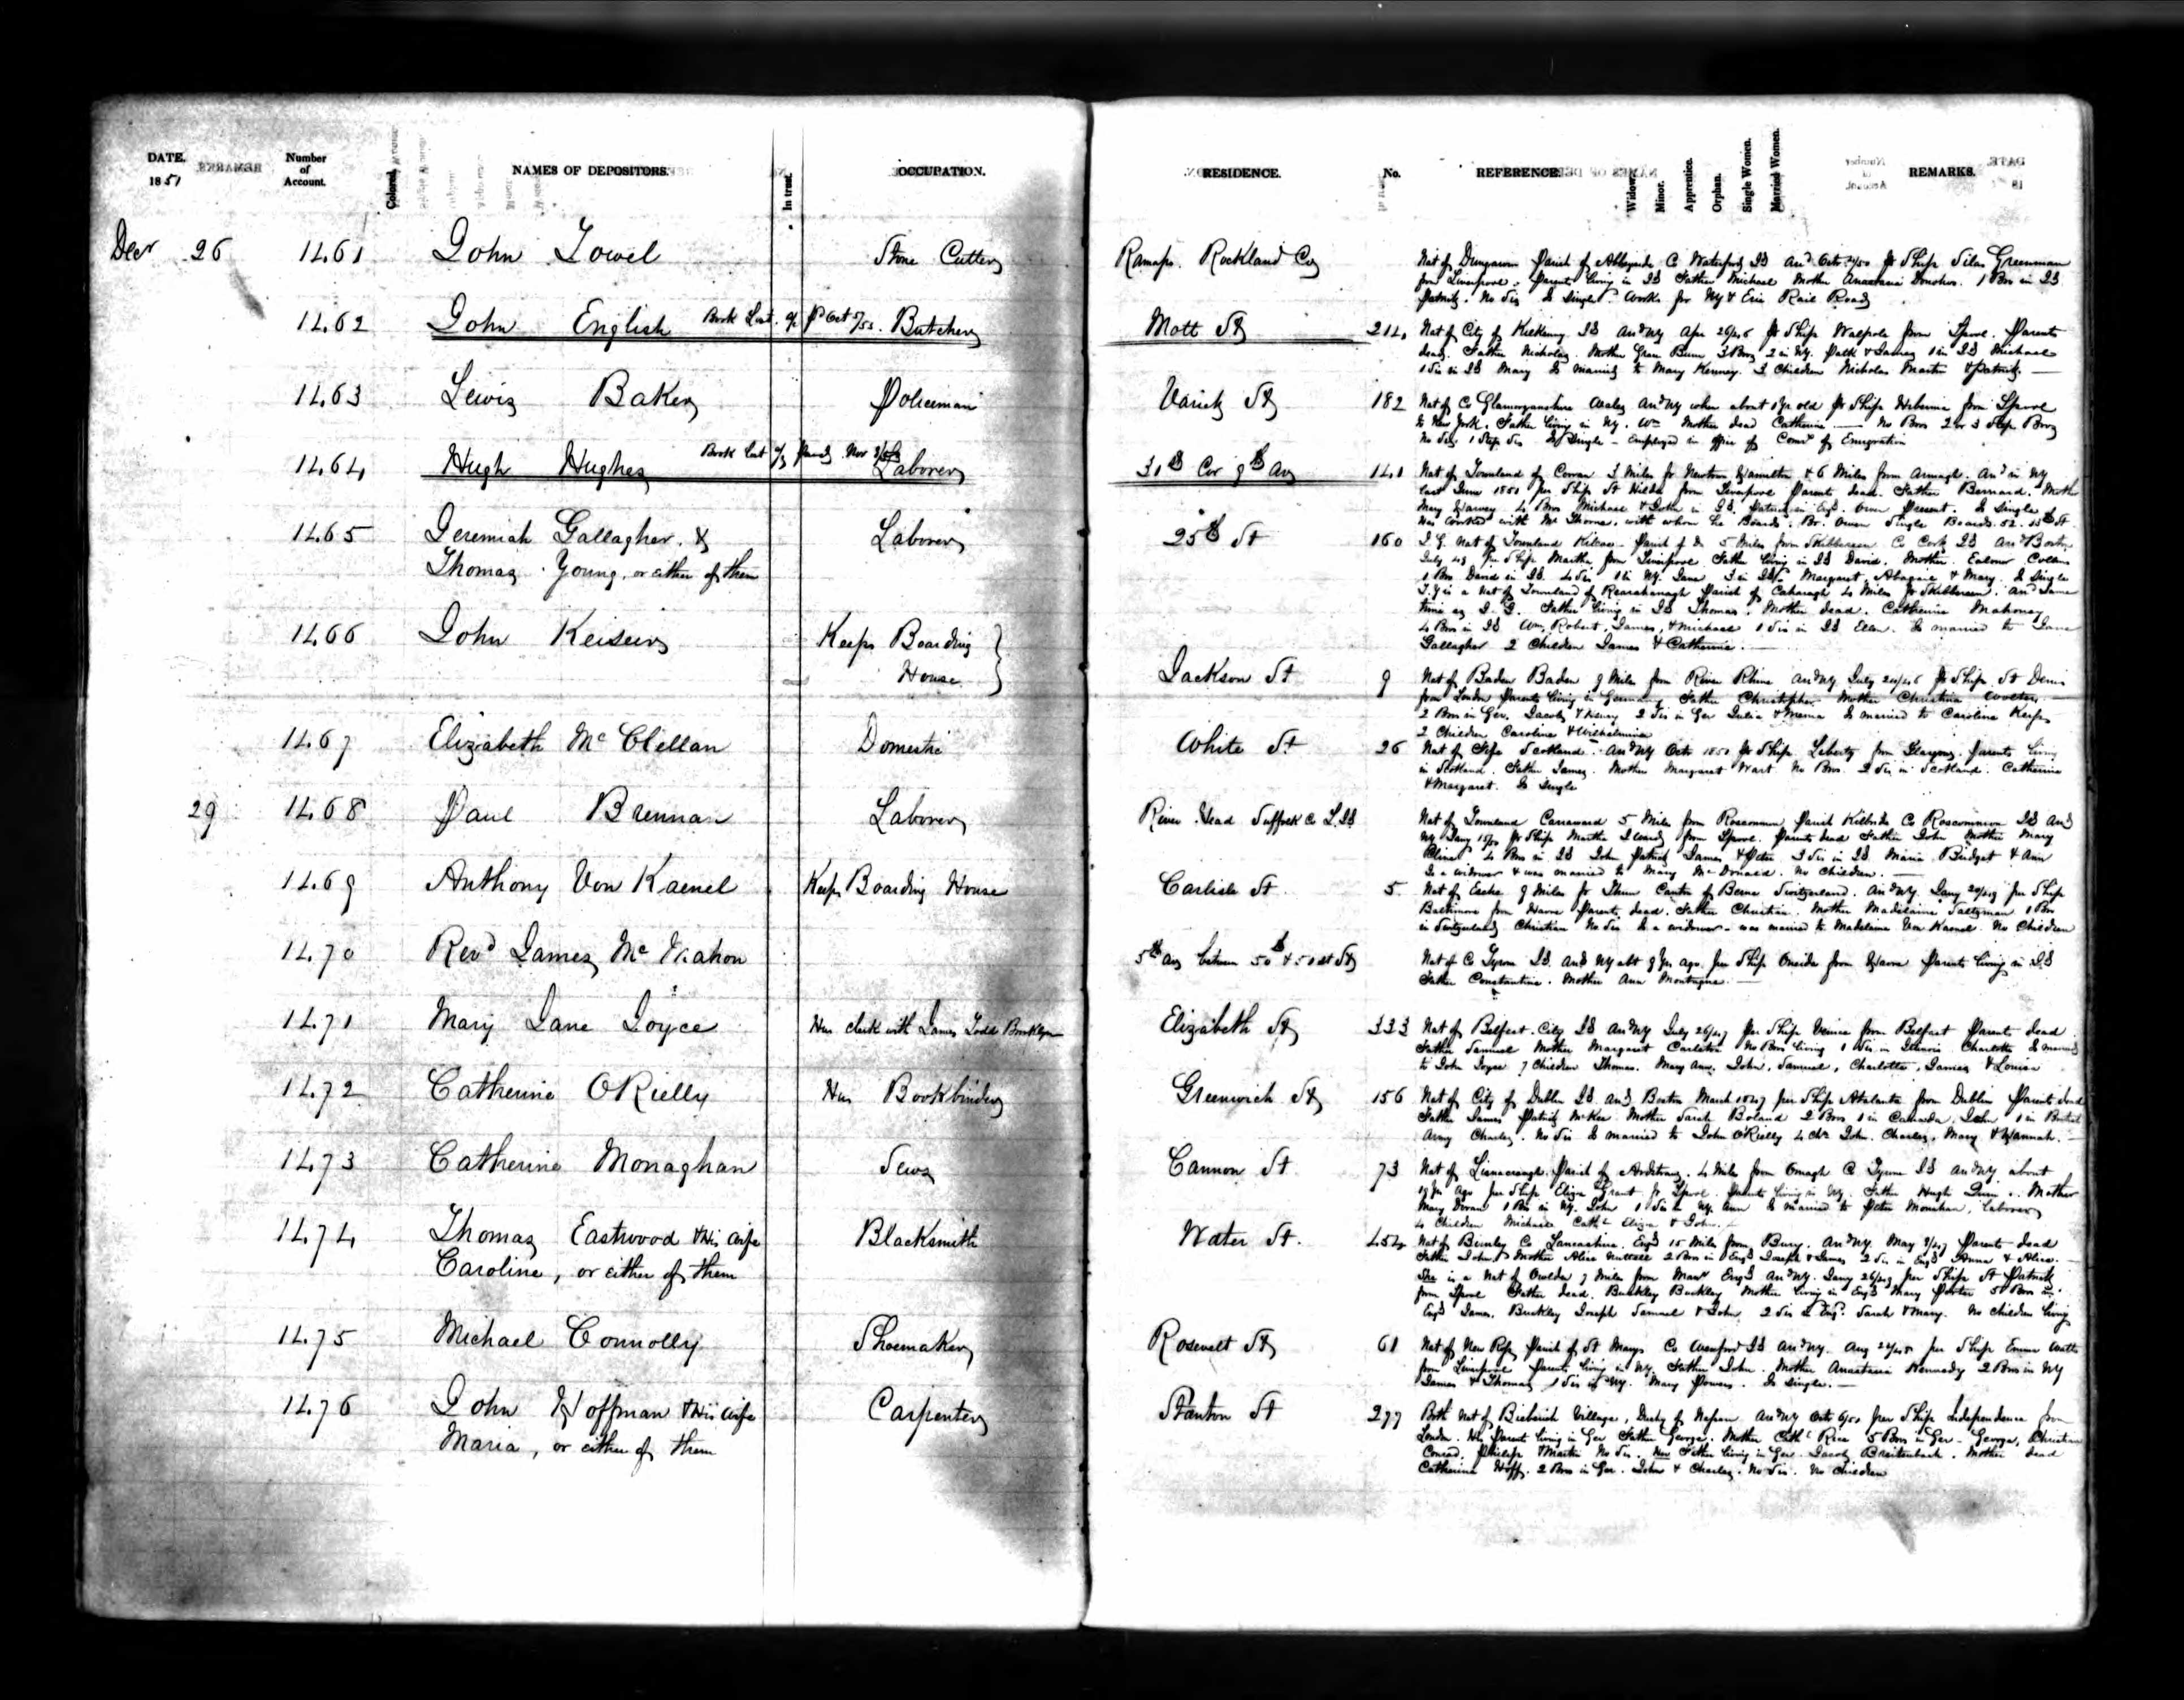 DATE. 1851
Number of Account.
Colored.
NAMES OF DEPOSITORS.
In trust.
OCCUPATION.
RESIDENCE.
No.
REFERENCE.
Widow.
Minor.
Apprentice.
Orphan.
Single Women.
Married Women.
REMARKS.
Decr 26 1461 John Stone Cutter Ramapo Rockland Co
Nat of Dungarvan Parish of Co Waterford Id Arrd Octr /50 pr Ship Silas Greenman
from Liverpool. Parents living in Id Father Michael Mother Anastasia Donohoe. 1 Bro in Id
Patrick. No Sis Is Single Works for NY & Erie Rail Road
1462 John English Book Lost. Pd Oct /52. Butcher Mott St 214
Nat of City of Kilkenny Id Arrd NY Apr 26/46 pr Ship Walpole from Lpool. Parents
dead. Father Nicholas. Mother Burn 3 Bros 2 in NY. Patk & James 1 in Id Michael
1 Sis in Id Mary Is married to Mary Kenney. 3 Children Nicholas Martin & Patrick.
1463 Lewis Baker Policeman Varick St 182
Nat of Co Glamorganshire Wales Arrd NY when about 1 yr old pr Ship Hibernia from Lpool
to New York. Father living in NY. Wm Mother dead Catherine — No Bros 2 or 3 Step Bros
No Sis, 1 Step Sis Is Single – Employed in office of Comrs of Emigration
1464 Hugh Hughes Book Lost Nov Laborer 31st Cor 9th Av 141
Nat of Townland of Cowan 3 Miles fr Newtown Hamilton & 6 Miles from Armagh. Arrd in NY
last June 1851 per Ship St Hilda from Liverpool Parents dead. Father Bernard. Mother
Mary Harvey 4 Bros Michael & John in Id. Patrick in Engd. Owen Present. Is Single
Has worked with Mr Thorne, with whom he Boards. Br. Owen Single Boards 52. 13th St
1465 Jeremiah Gallagher. & Laborer 25th St 160
Thomas Young, or either of them
J G. Nat of Townland Parish of do 5 Miles from Skibbereen Co Cork Id Arrd Boston
July 49 pr Ship Martha from Liverpool Father living in Id David. Mother
1 Bro David in Id. 4 Sis 1 in NY. Jane 3 in Id. Margaret, & Mary. Is Single
T. Y is a Nat of Townland of Parish of Caharagh 4 Miles fr Skibbereen. Arrd Same
time as J. G. Father living in Id Thomas. Mother dead. Catherine Mahoney
4 Bros in Id Wm, Robert, James, & Michael 1 Sis in Id Ellen. Is married to Jane
Gallagher 2 Children James & Catherine.
1466 John Keiser Keeps Boarding House Jackson St 9
Nat of Baden Baden 9 Miles from River Rhine Arrd NY July 24/46 pr Ship St Denis
from London Parents living in Germany Father Christopher Mother Christina
2 Bros in Ger. Jacob & Henry 2 Sis in Ger Julia & Is married to Caroline
2 Children Caroline & Wilhelmina
1467 Elizabeth McClellan Domestic White St 26
Nat of Fife Scotland Arrd NY Octr 1850 pr Ship Liberty from Glasgow. Parents living
in Scotland. Father James. Mother Margaret No Bros. 2 Sis in Scotland. Catherine
& Margaret. Is Single
29 1468 Paul Brennan Laborer River Head Suffolk Co L. Id
Nat of Townland 5 Miles from Roscommon Parish Kilbride Co Roscommon Id Arrd
NY Jany pr Ship Martha from Lpool. Parents dead Father John Mother Mary
4 Bros in Id John Patrick James & Peter 3 Sis in Id. Maria Bridget & Ann
Is a widower & was married to Mary McDonald. No Children.
1469 Anthony Von Kaenel Keeps Boarding House Carlisle St 5
Nat of 9 Miles fr Thun Canton of Berne Switzerland. Arrd NY. Jany 20/49 per Ship
Baltimore from Havre Parents dead. Father Christian. Mother Madelaine Saltzman 1 Bro
in Switzerland Christian No Sis Is a widower – was married to Madelaine Von Kaenel. No Children
1470 Revd James McMahon 5th Av between 50 & 51st St
Nat of Co Tyrone Id. Arrd NY abt 9 yrs ago. per Ship Oneida from Havre Parents living in Id
Father Constantine. Mother Ann Montague.
1471 Mary Jane Joyce Hus clerk with James Todd Brooklyn Elizabeth St 333
Nat of Belfast City Id Arrd NY July 26/47 per Ship from Belfast Parents dead
Father Samuel Mother Margaret Carleton No Bros living 1 Sis in Illinois Charlotte Is married
to John Joyce 7 Children Thomas. Mary Ann. John, Samuel, Charlotte, James & Louisa
1472 Catherine ORielly Hus Bookbinder Greenwich St 156
Nat of City of Dublin Id Arrd Boston March 1847 per Ship Atalanta from Dublin Parents dead
Father James Patrick McKee Mother Sarah Boland 2 Bros 1 in Canada, John 1 in British
Army Charles. No Sis Is married to John O'Rielly 4 Chn John. Charles. Mary & Hannah.
1473 Catherine Monaghan Sews Cannon St 73
Nat of Parish of Ardstraw. 4 Miles from Omagh Co Tyrone Id Arrd NY about
yrs ago per Ship Eliza Grant fr Lpool. Parents living in NY. Father Hugh Quinn. Mother
Mary 1 Bro in NY. John 1 Sis in NY. Ann Is married to Peter Monahan, laborer
4 Children Michael Cathe Eliza & John.
1474 Thomas Eastwood & His Wife Blacksmith Water St. 454
Caroline, or either of them
Nat of Burnley Co Lancashire. Engd 15 Miles from Bury. Arrd NY. May Parents dead
Father John Mother Alice 2 Bros in Engd Joseph & James 2 Sis in Engd Anna & Alice.
She is a Nat of 7 Miles from Manr Engd Arrd NY. Jany 26/49 per Ship St Patrick
from Lpool Father dead. Buckley Mother living in Engd Mary Porter 5 Bros in
Engd James. Buckley Joseph Samuel & John, 2 Sis in Engd Sarah & Mary. No Children living
1475 Michael Connolly Shoemaker Rosevelt St 61
Nat of New Ross Parish of St Marys Co Wexford Id Arrd NY. Aug 24/48 per Ship Emma Watts
from Liverpool Parents living in NY. Father John. Mother Anastasia Kennedy 2 Bros in NY
James & Thomas 1 Sis in NY. Mary Powers. Is Single.
1476 John Hoffman & His Wife Carpenter Stanton St 277
Maria, or either of them
Both Nat of Bieberich Village, Duchy of Nassau Arrd NY Octr 6/50 per Ship Independence from
London. His Parents living in Ger Father George. Mother Cathe Rice 5 Bros in Ger. George, Christian
Conrad, Philipp & Martin No Sis. Her Father living in Ger. Jacob Breitenbach. Mother dead
Catherine Hoff. 2 Bros in Ger. John & Charles. No Sis. No Children